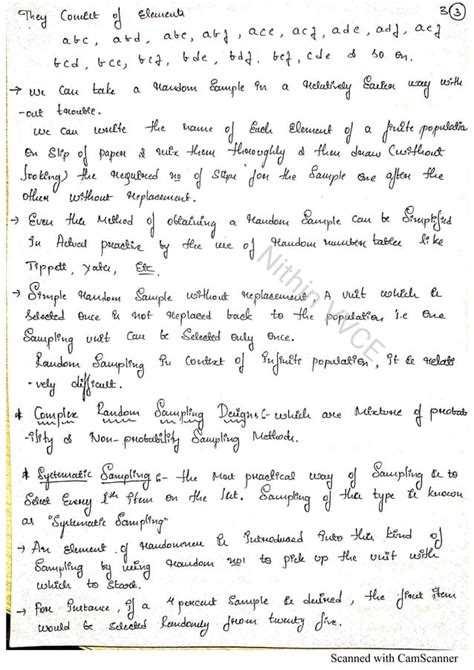 3 (3)
They Consist of Elements
abc, abd, abe, abf, ace, acf, ade, adf, acf
bcd, bce, bcf, bde, bdf, bef, cde & so on.
→ We can take a Random Sample in a relatively Easier way with
-out trouble.
We can write the name of Each Element of a finite population
on Slip of paper & mix them throughly & then draw (without
looking) the required no of Slips for the Sample one after the
other without Replacement.
→ Even this Method of obtaining a random Sample can be Simplified
In Actual practice by the use of Random number tables like
Tippett, yates, Etc.
→ Simple random Sample without replacement, A unit which is
Selected once is not replaced back to the population i.e one
Sampling unit can be Selected only once.
Random Sampling In Context of Infinite population, it is relati
-vely difficult.
* Complex Random Sampling Designs :- which are Mixture of probab
-ility & Non-probability Sampling Methods.
* Systematic Sampling :- the Most practical way of Sampling is to
Select Every ith item on the list. Sampling of this type is known
as "Systematic Sampling"
→ An Element of randomness is Introduced Into this kind of
Sampling by using random no! to pick up the unit with
which to Start.
→ For Instance, if a 4 percent Sample is desired, the first item
would be Selected Randomly from twenty five.
Nithin VVCE
Scanned with CamScanner